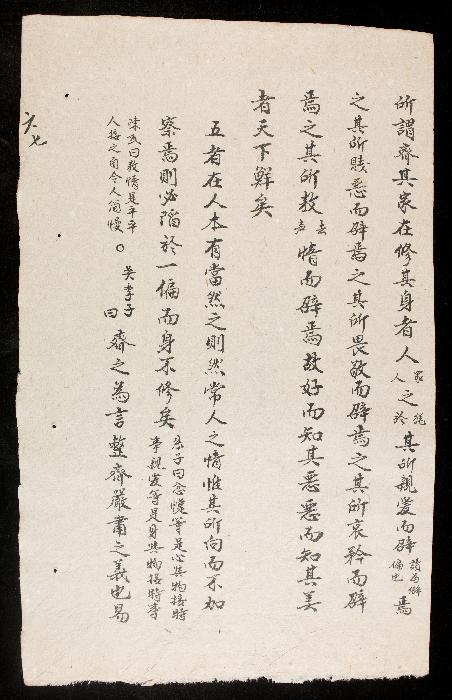 所謂齊其家在修其身者人眾人之於其所親愛而辟讀為僻偏也焉
之其所賤惡而辟焉之其所畏敬而辟焉之其所哀矜而辟
焉之其所敖去聲惰而辟焉故好而知其惡惡而知其美
者天下鮮矣
五者在人本有當然之則然常人之情惟其所向而不加
察焉則必陷於一偏而身不修矣朱子曰忿懥等是心與物接時事親愛等是身與物接時事
陳氏曰敖惰是平平人接之自令人簡慢○吳季子曰齊之為言整齊嚴肅之義也易
六七